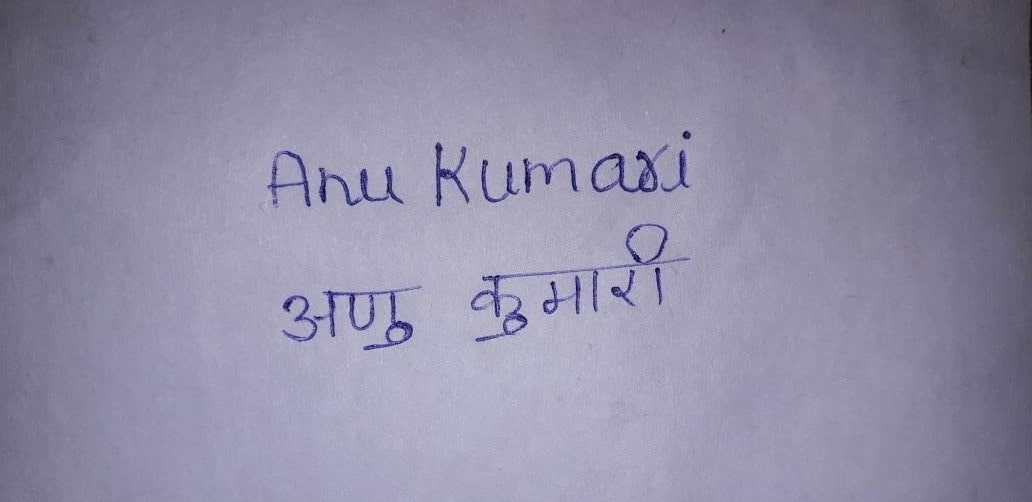 Anu Kumari
अणु कुमारी